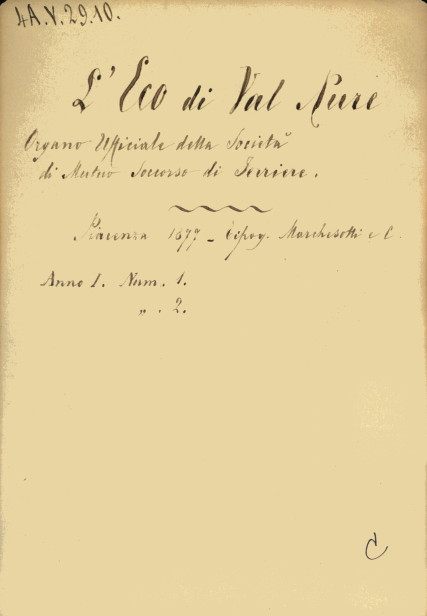 4A.V.29.10.
L'Eco di Val Nure
Organo Ufficiale della Società
di Mutuo Soccorso di Ferriere.
Piacenza 1877 - Tipog. Marchesotti e C.
Anno I. Num. 1.
„ . 2.
C